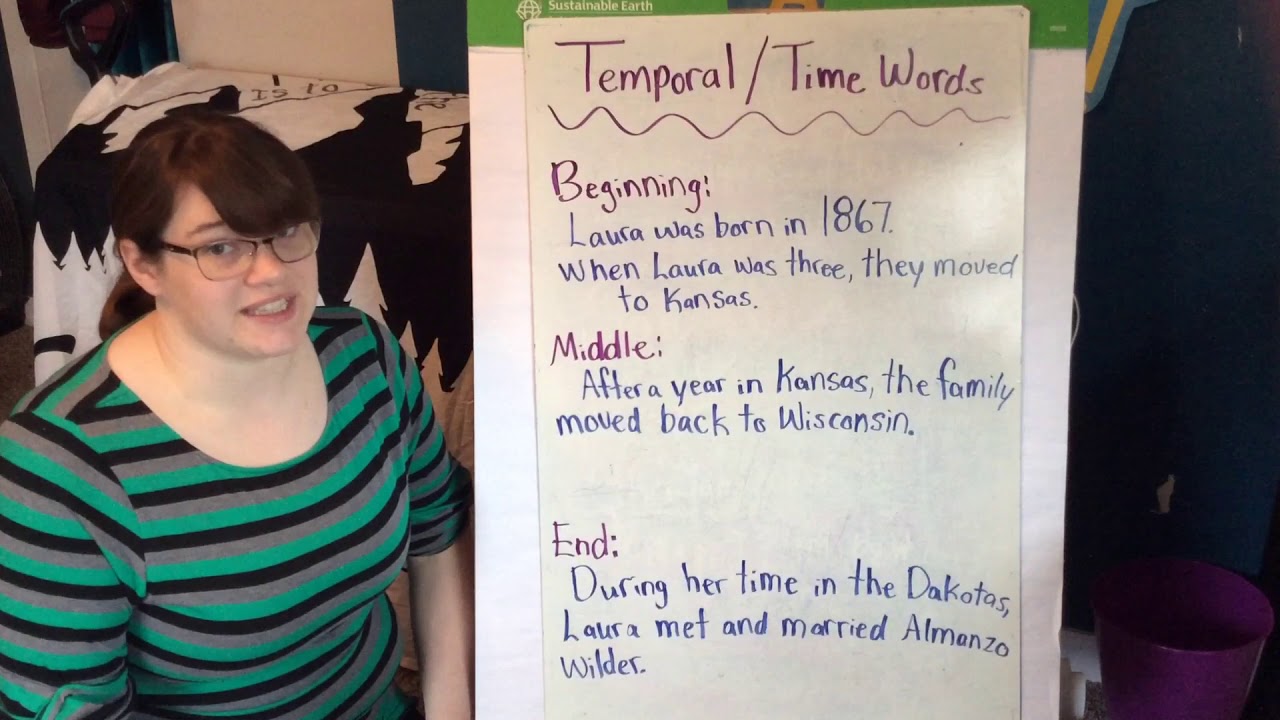 Sustainable Earth
IS TO
Temporal / Time Words
Beginning:
Laura was born in 1867.
When Laura was three, they moved
to Kansas.
Middle:
After a year in Kansas, the family
moved back to Wisconsin.
End:
During her time in the Dakotas,
Laura met and married Almanzo
Wilder.